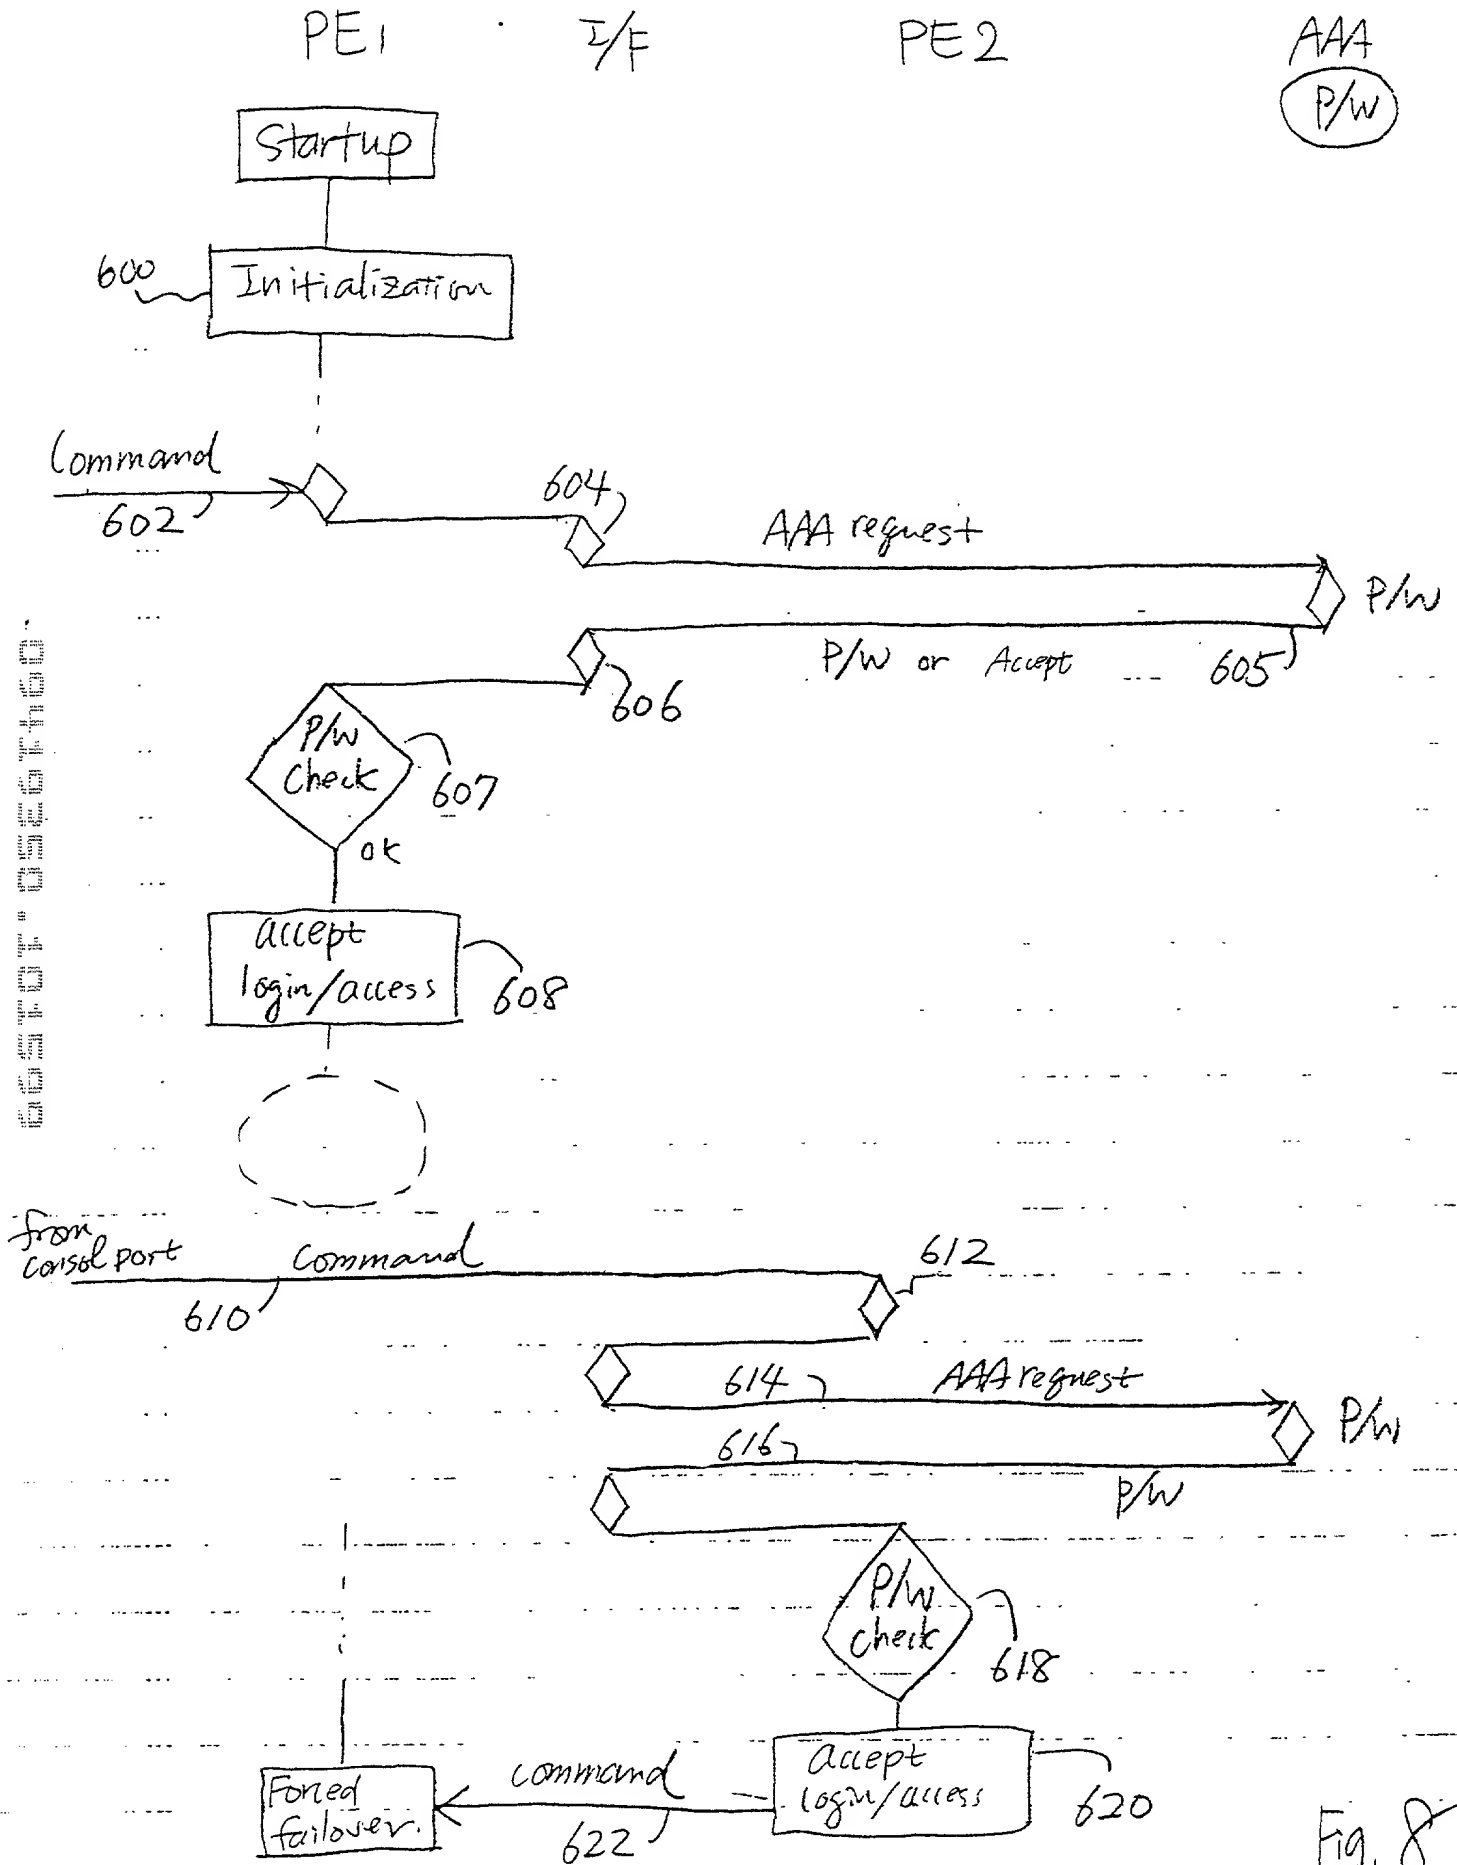 PE1 I/F PE2 AAA
P/W
Startup
600
Initialization
Command
602
604
AAA request
P/W
P/W or Accept
605
606
P/W
check
607
OK
accept
login/access
608
from
consol port
command
610
612
614
AAA request
P/W
616
P/W
P/W
check
618
accept
login/access
620
command
622
Forced
failover.
Fig. 8